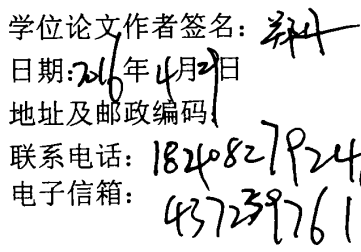 学位论文作者签名：
日期：2016年4月29日
地址及邮政编码：
联系电话：18240827924
电子信箱：437259761